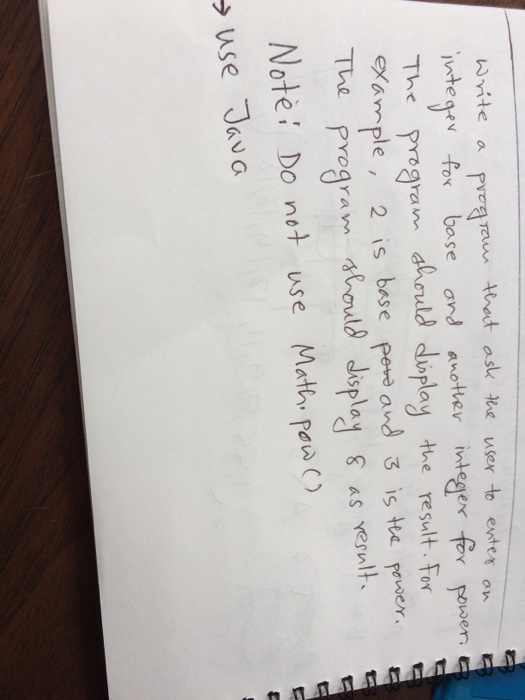 Write a program that ask the user to enter an
integer for base and another integer for power.
The program should display the result. For
example, 2 is base and 3 is the power.
The program should display 8 as result.
Note: Do not use Math.pow()
→ use Java